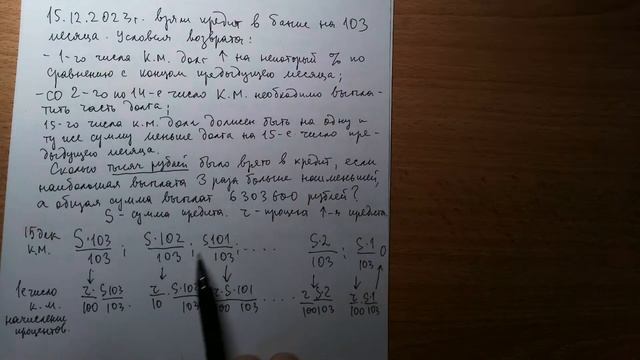 15.12.2023г. взят кредит в банке на 103
месяца. Условия возврата:
- 1-го числа К.М. долг ↑ на некоторый % по
сравнению с концом предыдущего месяца;
- со 2-го по 14-е число К.М. необходимо выпла-
тить часть долга;
15-го числа К.М. долг должен быть на одну и
ту же сумму меньше долга на 15-е число пре-
дыдущего месяца.
Сколько тысяч рублей было взято в кредит, если
наибольшая выплата 3 раза больше наименьшей,
а общая сумма выплат 6303600 рублей?
S - сумма кредита. r - процент ↑-я кредита.
15 дек К.М. S·103/103 ; S·102/103 ; S·101/103 ; .... S·2/103 ; S·1/103 0
1е число К.М. начисление процентов. r/100 · S·103/103 r/10 · S·102/103 r/100 · S·101/103 .... r/100 S·2/103 r/100 S·1/103